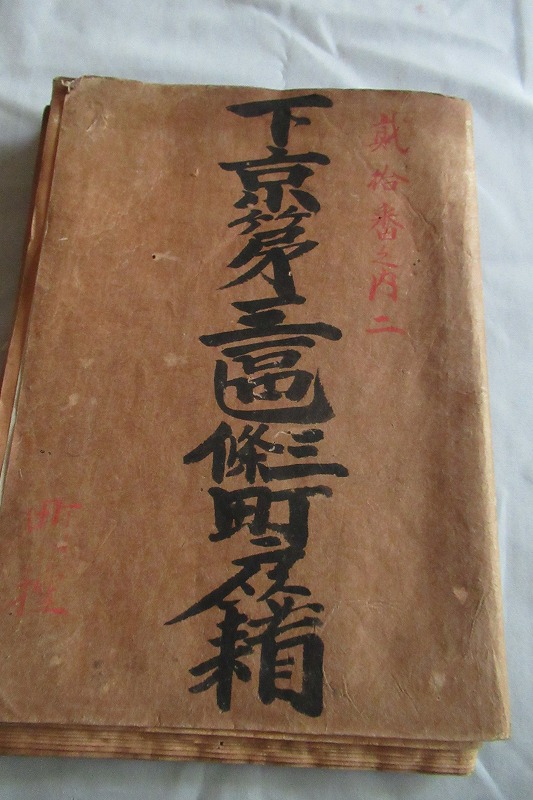 貳拾番之内二
下京第三區三條町戸籍